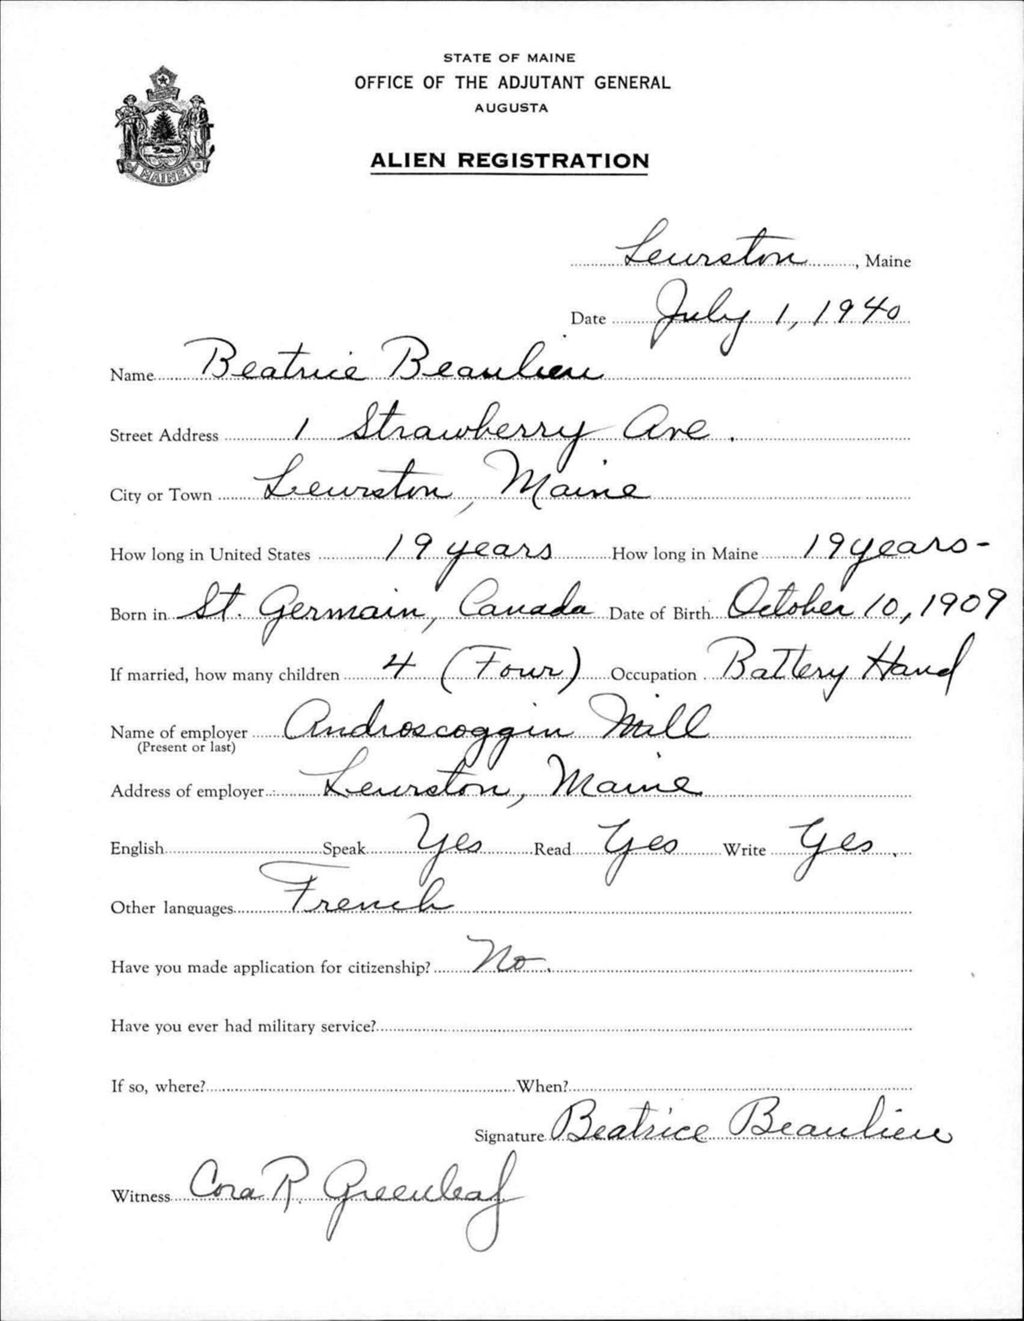 STATE OF MAINE
OFFICE OF THE ADJUTANT GENERAL
AUGUSTA
ALIEN REGISTRATION
MAINE
Lewiston, Maine
Date July 1, 1940
Name Beatrice Beaulieu
Street Address 1 Strawberry Ave.
City or Town Lewiston, Maine
How long in United States 19 years How long in Maine 19 years-
Born in St. Germain, Canada Date of Birth October 10, 1909
If married, how many children 4 (Four) Occupation Battery Hand
Name of employer Androscoggin Mill
(Present or last)
Address of employer Lewiston, Maine
English Speak Yes Read Yes Write Yes.
Other languages French
Have you made application for citizenship? No.
Have you ever had military service?
If so, where? When?
Signature Beatrice Beaulieu
Witness Cora R. Greenleaf